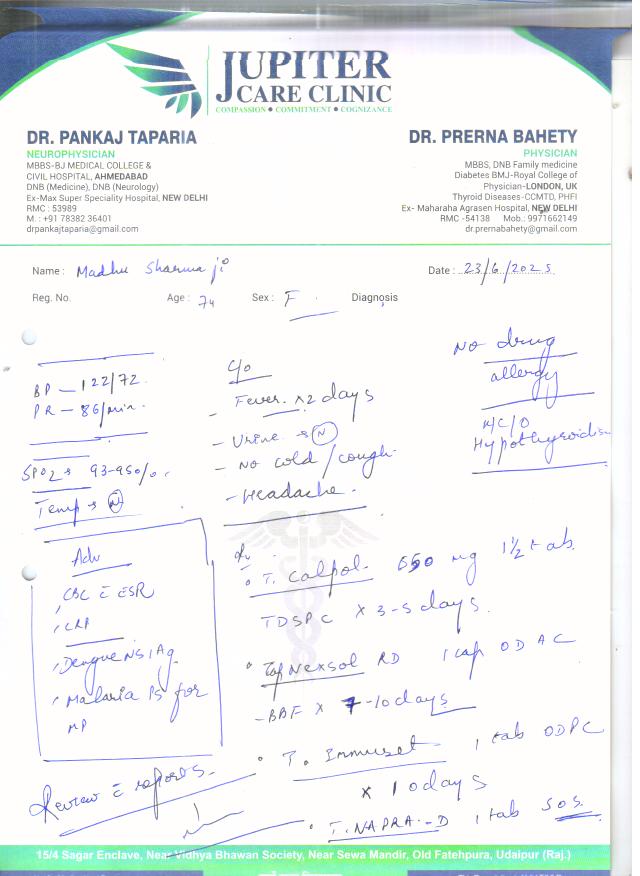 JUPITER
CARE CLINIC
COMPASSION • COMMITMENT • COGNIZANCE
DR. PANKAJ TAPARIA
NEUROPHYSICIAN
MBBS-BJ MEDICAL COLLEGE &
CIVIL HOSPITAL, AHMEDABAD
DNB (Medicine), DNB (Neurology)
Ex-Max Super Speciality Hospital, NEW DELHI
RMC : 53989
M. : +91 78382 36401
drpankajtaparia@gmail.com
DR. PRERNA BAHETY
PHYSICIAN
MBBS, DNB Family medicine
Diabetes BMJ-Royal College of
Physician-LONDON, UK
Thyroid Diseases-CCMTD, PHFI
Ex- Maharaha Agrasen Hospital, NEW DELHI
RMC -54138 Mob.: 9971662149
dr.prernabahety@gmail.com
Name : Madhu Sharma ji
Date : 23/6/2025
Reg. No. Age : 74 Sex : F Diagnosis
No drug
allergy
K/C/O
Hypothyroidism
BP - 122/72
PR - 86/min.
SPO2 93-95%.
Temp N
c/o
- Fever x 2 days
- Urine N
- No cold/cough
- Headache
Adv
CBC c ESR
CRP
Dengue NS1Ag
Malaria PS for
MP
Review c reports
T. Calpol 650 mg 1½ tab
TDSPC x 3-5 days
Cap Nexsol RD 1 cap OD AC
- BBF x 7-10 days
T. Immuset 1 tab ODPC
x 10days
T. NAPRA-D 1 tab SOS
15/4 Sagar Enclave, Near Vidhya Bhawan Society, Near Sewa Mandir, Old Fatehpura, Udaipur (Raj.)